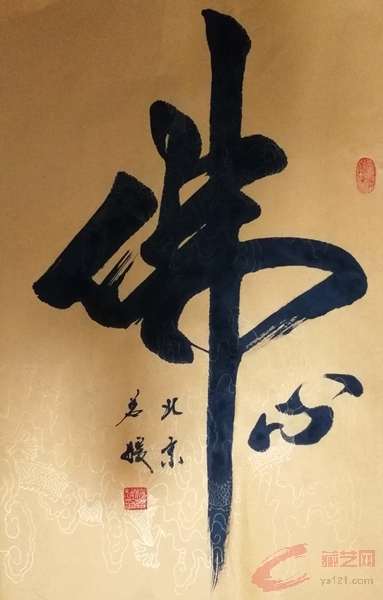 佛心
北京
藏艺网
ya121.com